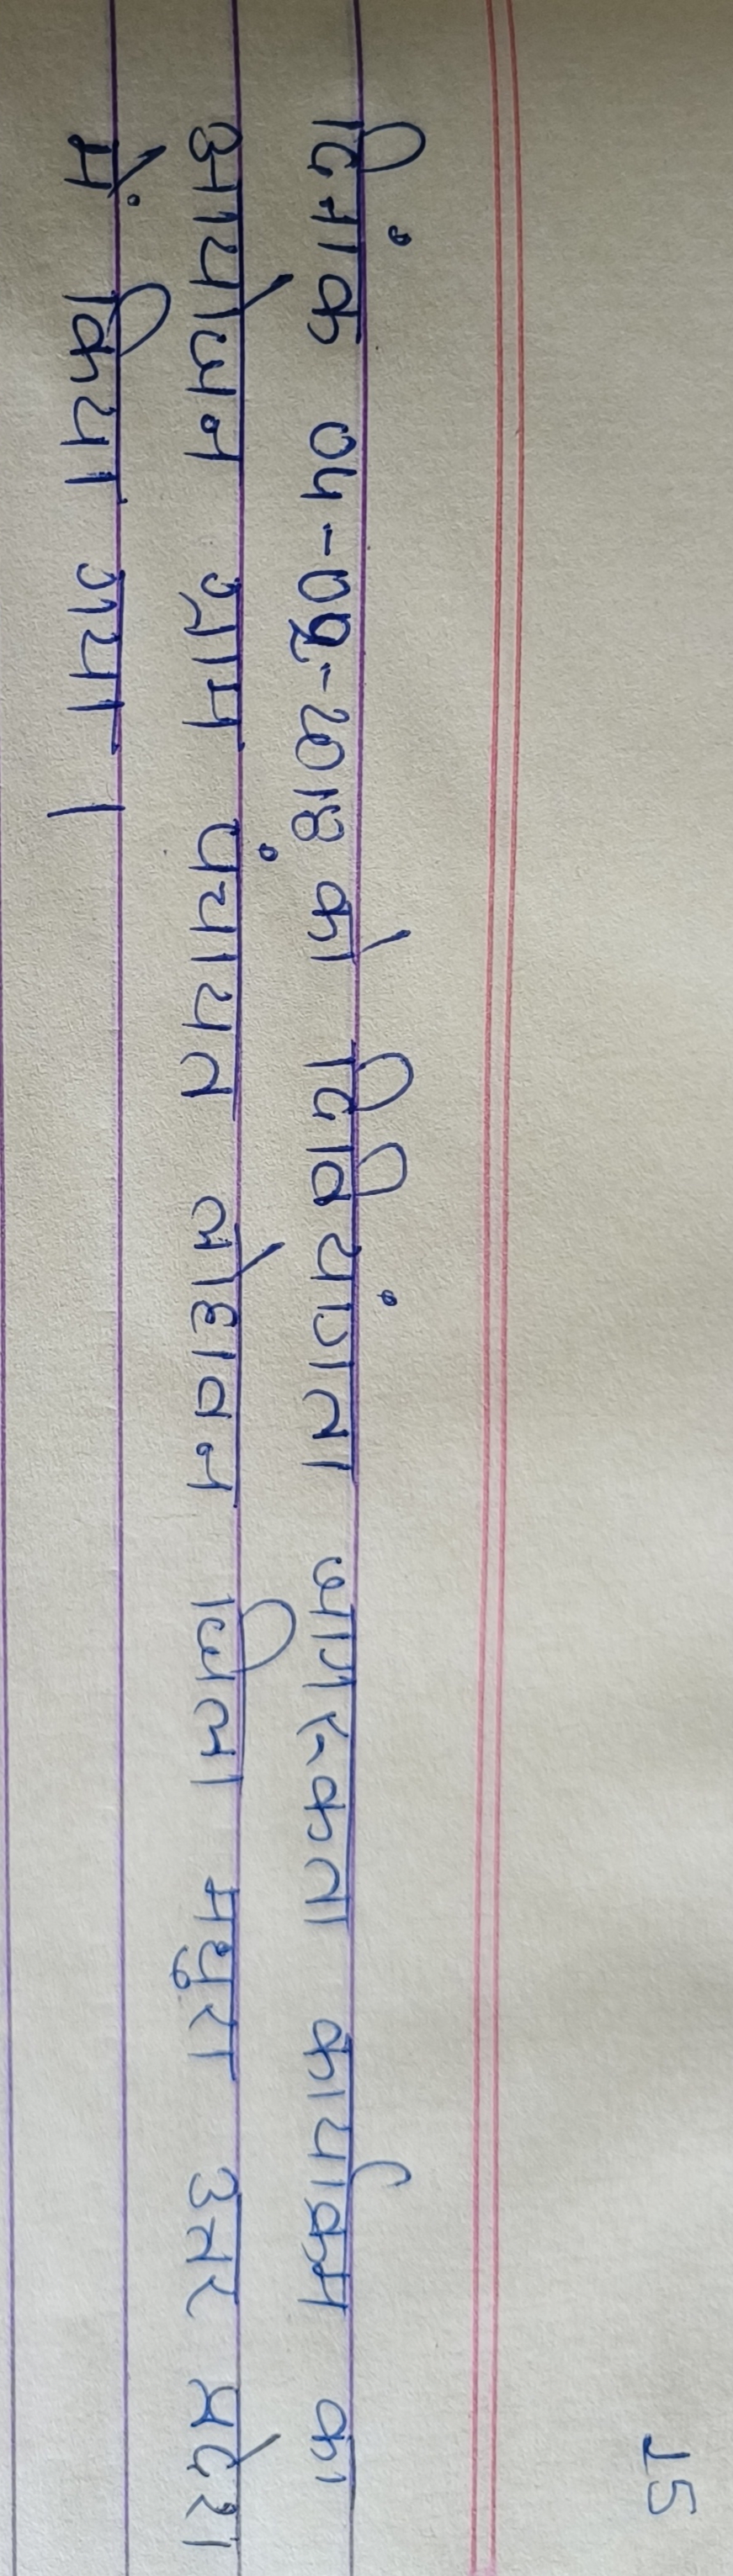 15
दिनांक 04-09-2018 को दिवियांगता जागरुकता कार्यक्रम का
आयोजन ग्राम पंचायत लोहावन जिला मथुरा उत्तर प्रदेश
में किया गया ।